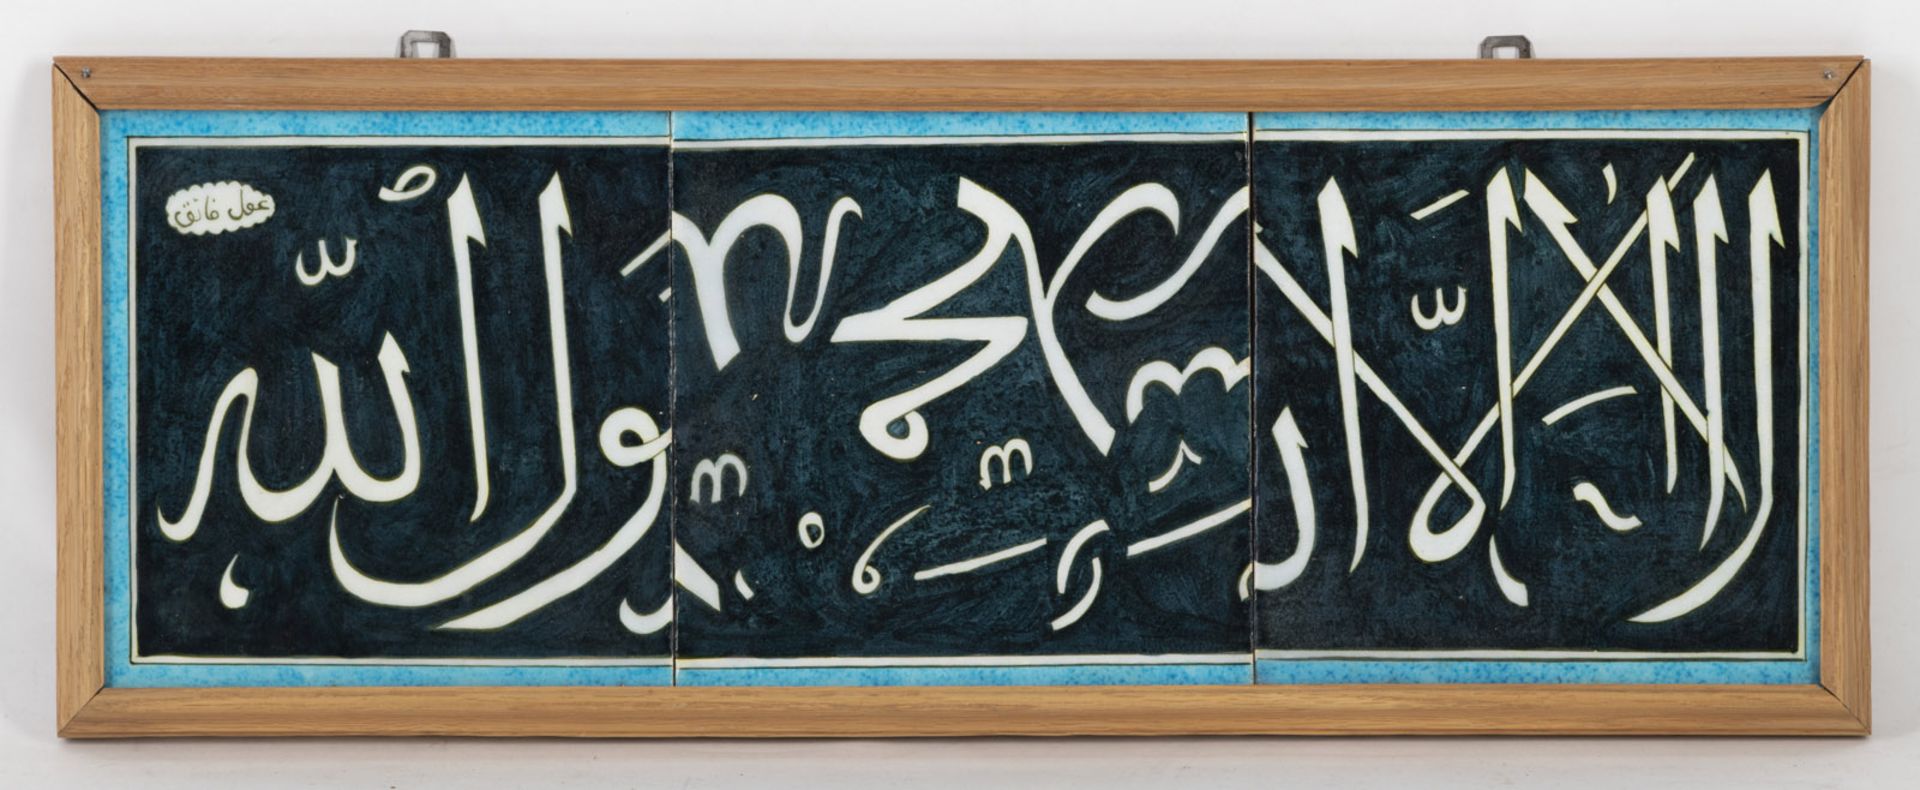 لا اله الا الله محمد رسول الله
عمل فائق